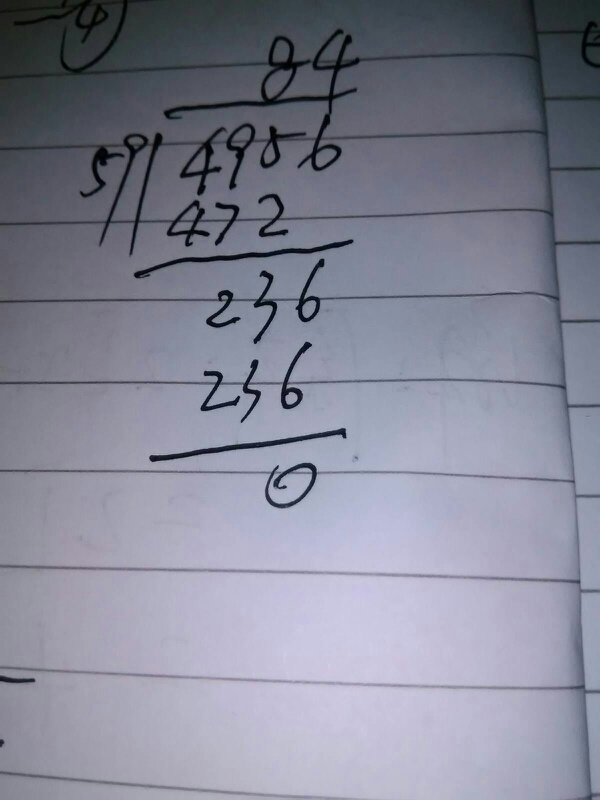 4)
84
59 4956
472
236
236
0